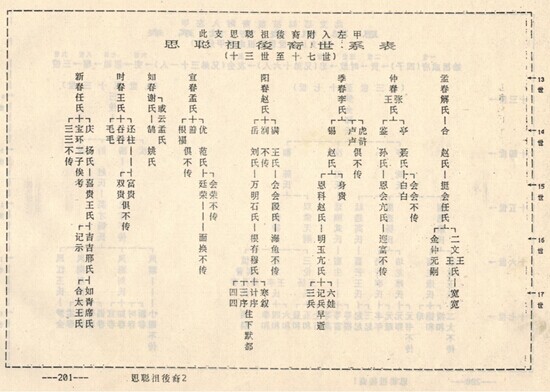 此支思聪祖後裔附入左甲
思聪祖後裔世系表
(十三世至十七世)
13世
14世
15世
16世
17世
孟春解氏 合 赵氏 挺会任氏 二文王氏 宽宽
金钟无嗣
仲春张氏王 亭 若氏 白白 会会不传
鉴 孙氏 恩会亢氏 迎富不传
季春李氏 虎浒 卢卢俱不传
锡 赵氏 身贵
恩科赵氏 明玉亢氏 六娃 记兵早逝 三兵
阳春赵氏 满 王氏 会会段氏 海鱼不传
润 不传
岳 刘氏 万明石氏 根有穆氏 寒鋖 计序 三序 住下默都 四四
宜春孟氏 优 范氏 廷荣 会荣不传 面换不传
善 根福俱不传
如春谢氏(或云孟氏) 鹄 姚氏
时春王氏 还柱 富贵俱不传
吞吞 双贵
毛毛
新春任氏 庆 杨氏 喜贵王氏 吉吉邢氏 如青席氏
记示 合太王氏
宝环二子俟考
三三不传
---201--- 思聪祖後裔2